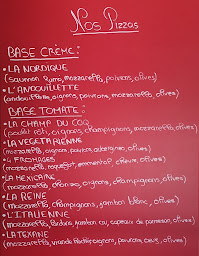 Nos Pizzas
BASE CRÈME:
• LA NORDIQUE
(saumon fumé, mozzarella, poivrons, olives)
• L'ANDOUILLETTE
(andouillette, oignons, poivrons, mozzarella, olives)
BASE TOMATE:
• LA CHAMP DU COQ
(poulet rôti, oignons, champignons, mozzarella, olives)
• LA VEGETARIENNE
(mozzarella, oignons, poivrons, aubergines, olives)
• 4 FROMAGES
(mozzarella, roquefort, emmental, chèvre, olives)
• LA MEXICAINE
(mozzarella, chorizo, oignons, champignons, olives)
• LA REINE
(mozzarella, champignons, jambon blanc, olives)
• L'ITALIENNE
(mozzarella, jambon cru, copeaux de parmesan, olives)
• LA TEXANE
(mozzarella, viande hachée, oignons, poivrons, olives)